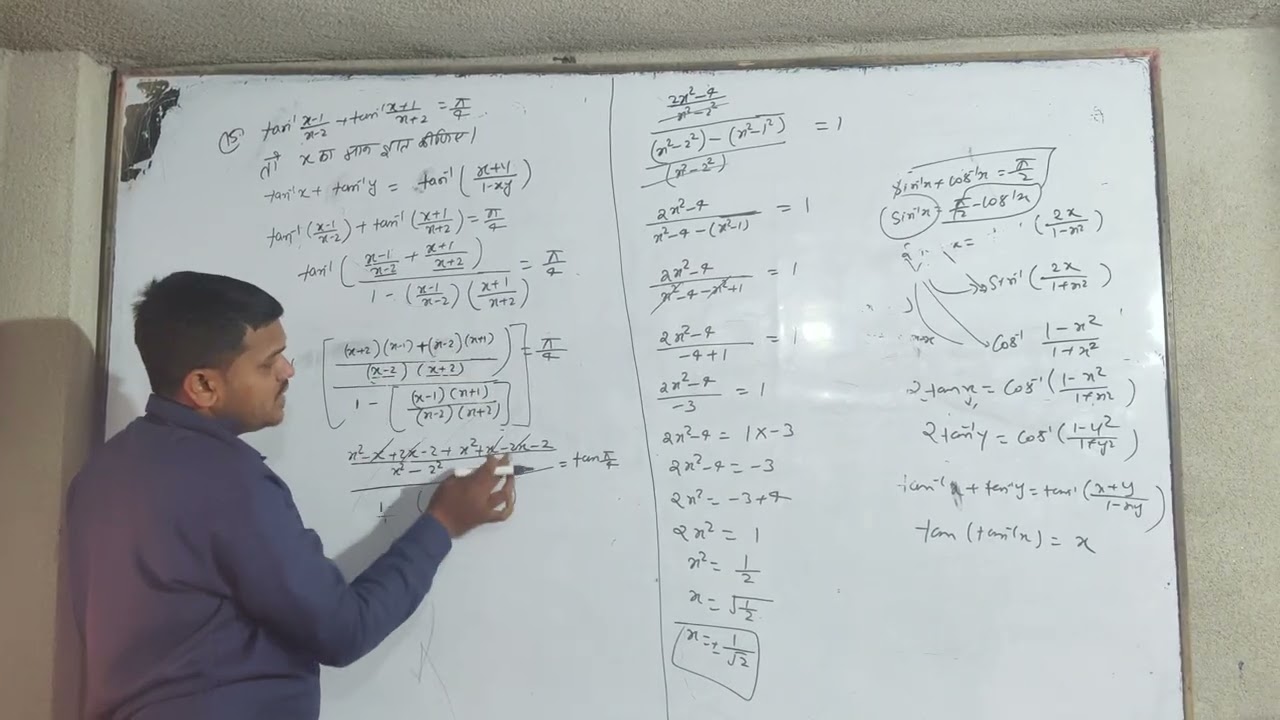 15. tan⁻¹ (x-1)/(x-2) + tan⁻¹ (x+1)/(x+2) = π/4
तो x का मान ज्ञात कीजिए।
tan⁻¹x + tan⁻¹y = tan⁻¹((x+y)/(1-xy))
tan⁻¹((x-1)/(x-2)) + tan⁻¹((x+1)/(x+2)) = π/4
tan⁻¹(((x-1)/(x-2) + (x+1)/(x+2))/(1 - ((x-1)/(x-2))((x+1)/(x+2)))) = π/4
[((x+2)(x-1)+(x-2)(x+1))/((x-2)(x+2)) / (1 - [((x-1)(x+1))/((x-2)(x+2))])] = π/4
(x²-x+2x-2+x²+x-2x-2)/(x²-2²)
= tan π/4
(2x²-4)/(x²-2²) / (((x²-2²)-(x²-1²))/(x²-2²)) = 1
(2x²-4)/(x²-4-(x²-1)) = 1
(2x²-4)/(x²-4-x²+1) = 1
(2x²-4)/(-4+1) = 1
(2x²-4)/-3 = 1
2x²-4 = 1x-3
2x²-4 = -3
2x² = -3+4
2x² = 1
x² = 1/2
x = √(1/2)
x = ± 1/√2
sin⁻¹x + cos⁻¹x = π/2
sin⁻¹x = π/2 - cos⁻¹x
(2x/(1-x²))
sin⁻¹(2x/(1+x²))
cos⁻¹ (1-x²)/(1+x²)
2 tan⁻¹x = cos⁻¹((1-x²)/(1+x²))
2 tan⁻¹y = cos⁻¹((1-y²)/(1+y²))
tan⁻¹x + tan⁻¹y = tan⁻¹((x+y)/(1-xy))
tan(tan⁻¹x) = x